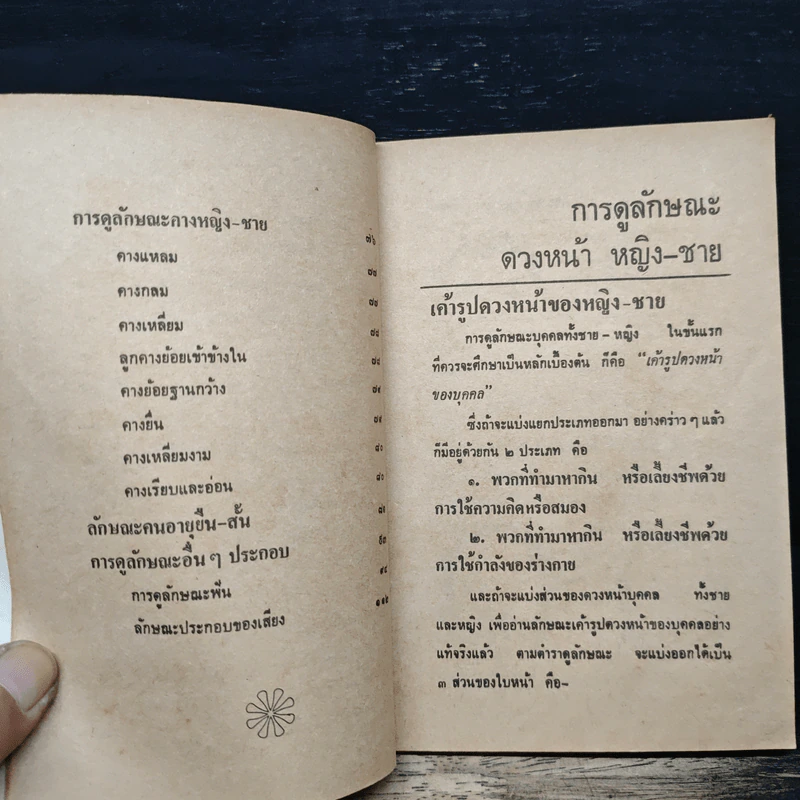 การดูลักษณะคางหญิง-ชาย ๗๖
คางแหลม ๗๗
คางกลม ๗๗
คางเหลี่ยม ๗๘
ลูกคางย้อยเข้าข้างใน ๗๘
คางย้อยฐานกว้าง ๗๙
คางยื่น ๗๙
คางเหลี่ยมงาม ๘๐
คางเรียบและอ่อน ๘๐
ลักษณะคนอายุยืน-สั้น
การดูลักษณะอื่น ๆ ประกอบ
การดูลักษณะฟัน
ลักษณะประกอบของเสียง
การดูลักษณะ
ดวงหน้า หญิง-ชาย
เค้ารูปดวงหน้าของหญิง-ชาย
การดูลักษณะบุคคลทั้งชาย - หญิง ในขั้นแรก
ที่ควรจะศึกษาเป็นหลักเบื้องต้น ก็คือ "เค้ารูปดวงหน้า
ของบุคคล"
ซึ่งถ้าจะแบ่งแยกประเภทออกมา อย่างคร่าว ๆ แล้ว
ก็มีอยู่ด้วยกัน ๒ ประเภท คือ
๑. พวกที่ทำมาหากิน หรือเลี้ยงชีพด้วย
การใช้ความคิดหรือสมอง
๒. พวกที่ทำมาหากิน หรือเลี้ยงชีพด้วย
การใช้กำลังของร่างกาย
และถ้าจะแบ่งส่วนของดวงหน้าบุคคล ทั้งชาย
และหญิง เพื่ออ่านลักษณะเค้ารูปดวงหน้าของบุคคลอย่าง
แท้จริงแล้ว ตามตำราดูลักษณะ จะแบ่งออกได้เป็น
๓ ส่วนของใบหน้า คือ-